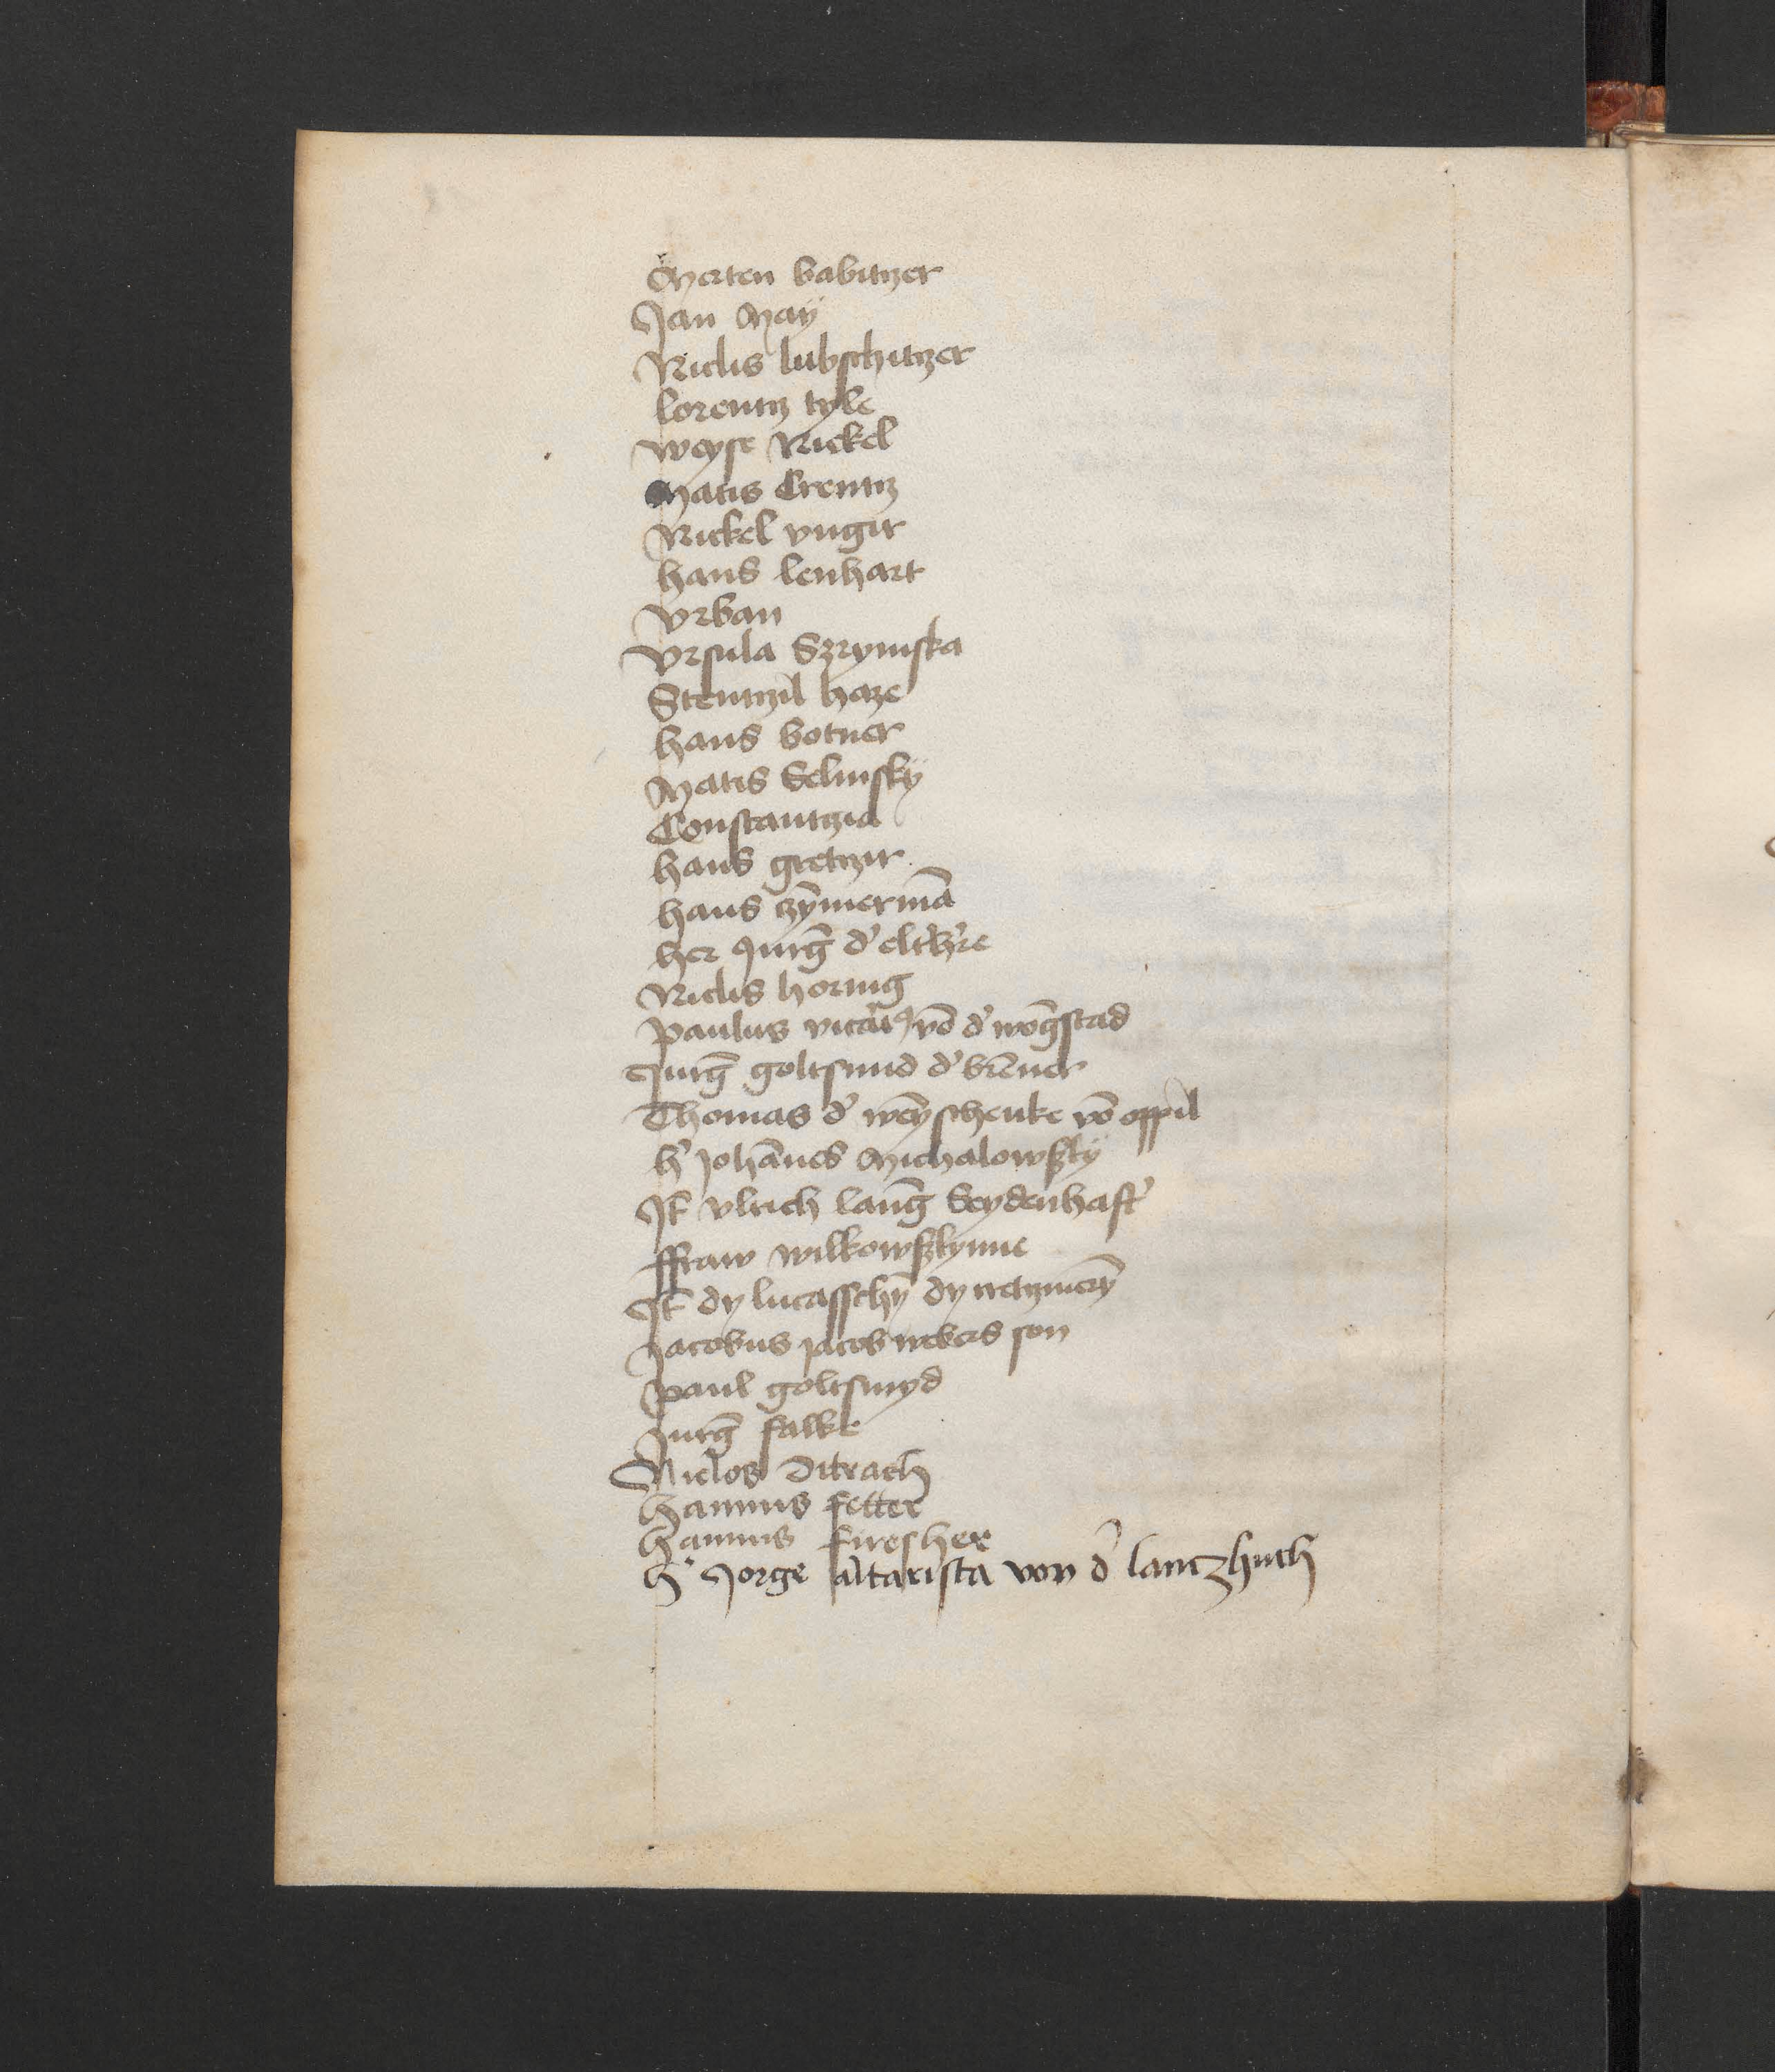 Merten babitzer
Jan Maÿ
Niclis lubschitzer
lorentz tyle
weyse Nickel
Matis Crentz
Nickel vngir
hans lenhart
Vrban
Vrsula Szrymska
Stentzil haze
hans botner
Matis Selinskÿ
Constantzia
hans gretzir
hans czȳmermā
her Jurḡ d' elth're
Niclis hornig
Paulus vicari9 vō d' wōgstad
Jurḡ goltsmid d' brēner
Thomas d' weȳschenke vō oppil
h' Johānes Michalowskÿ
It̄ vlrich lanḡ Seydenhaft'
ffraw wilkowskynne
It̄ dy lucasschȳ dy
Jacobus jacob webers son
Paul goltsmyd
Jurḡ falke
Niclos Ditrach
hannus fetter
hannus firesher
h' Jorge altarista von d' lanczhuth